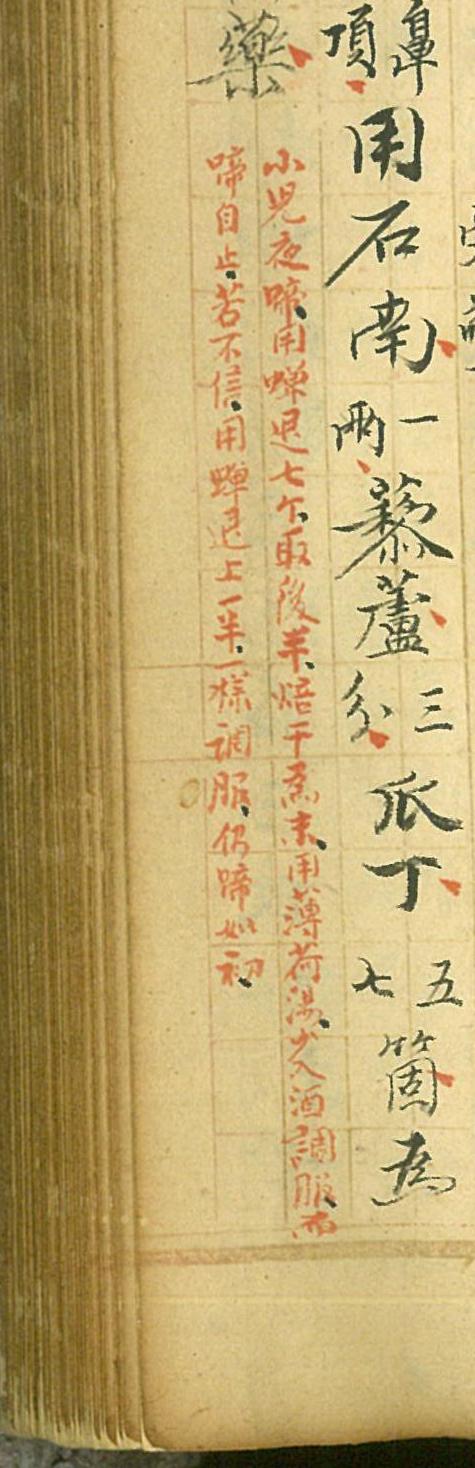 鼻
項
用石南一兩藜蘆三分瓜丁五七箇為
藥
小児夜啼用蟬退七个取後半焙干為末用薄荷湯少入酒調服而
啼自止若不信用蟬退上一半一樣調服仍啼如初